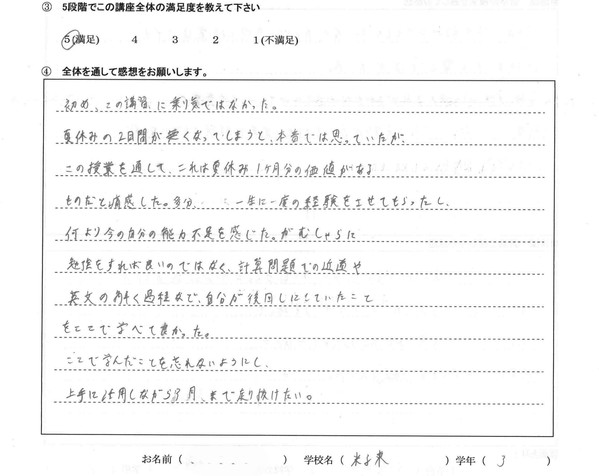 ③ 5段階でこの講座全体の満足度を教えて下さい
5(満足) 4 3 2 1(不満足)
④ 全体を通して感想をお願いします。
初め、この講習に乗り気ではなかった。
夏休みの2日間が無くなってしまうと、本音では思っていたが、
この授業を通して、これは夏休み1ヶ月分の価値がある
ものだと痛感した。多分 一生に一度の経験をさせてもらったし、
何より今の自分の能力不足を感じた。がむしゃらに
勉強をすれば良いのではなく、計算問題での近道や
英文の解く過程など、自分が後回しにしていたこと
をここで学べて良かった。
ここで学んだことを忘れないようにし、
上手に活用しながら3月まで走り抜けたい。
お名前 ( ) 学校名 ( 米子東 ) 学年 ( 3 )